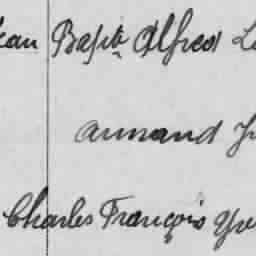 ean Baptte Alfred L
Armand J
Charles François Yve